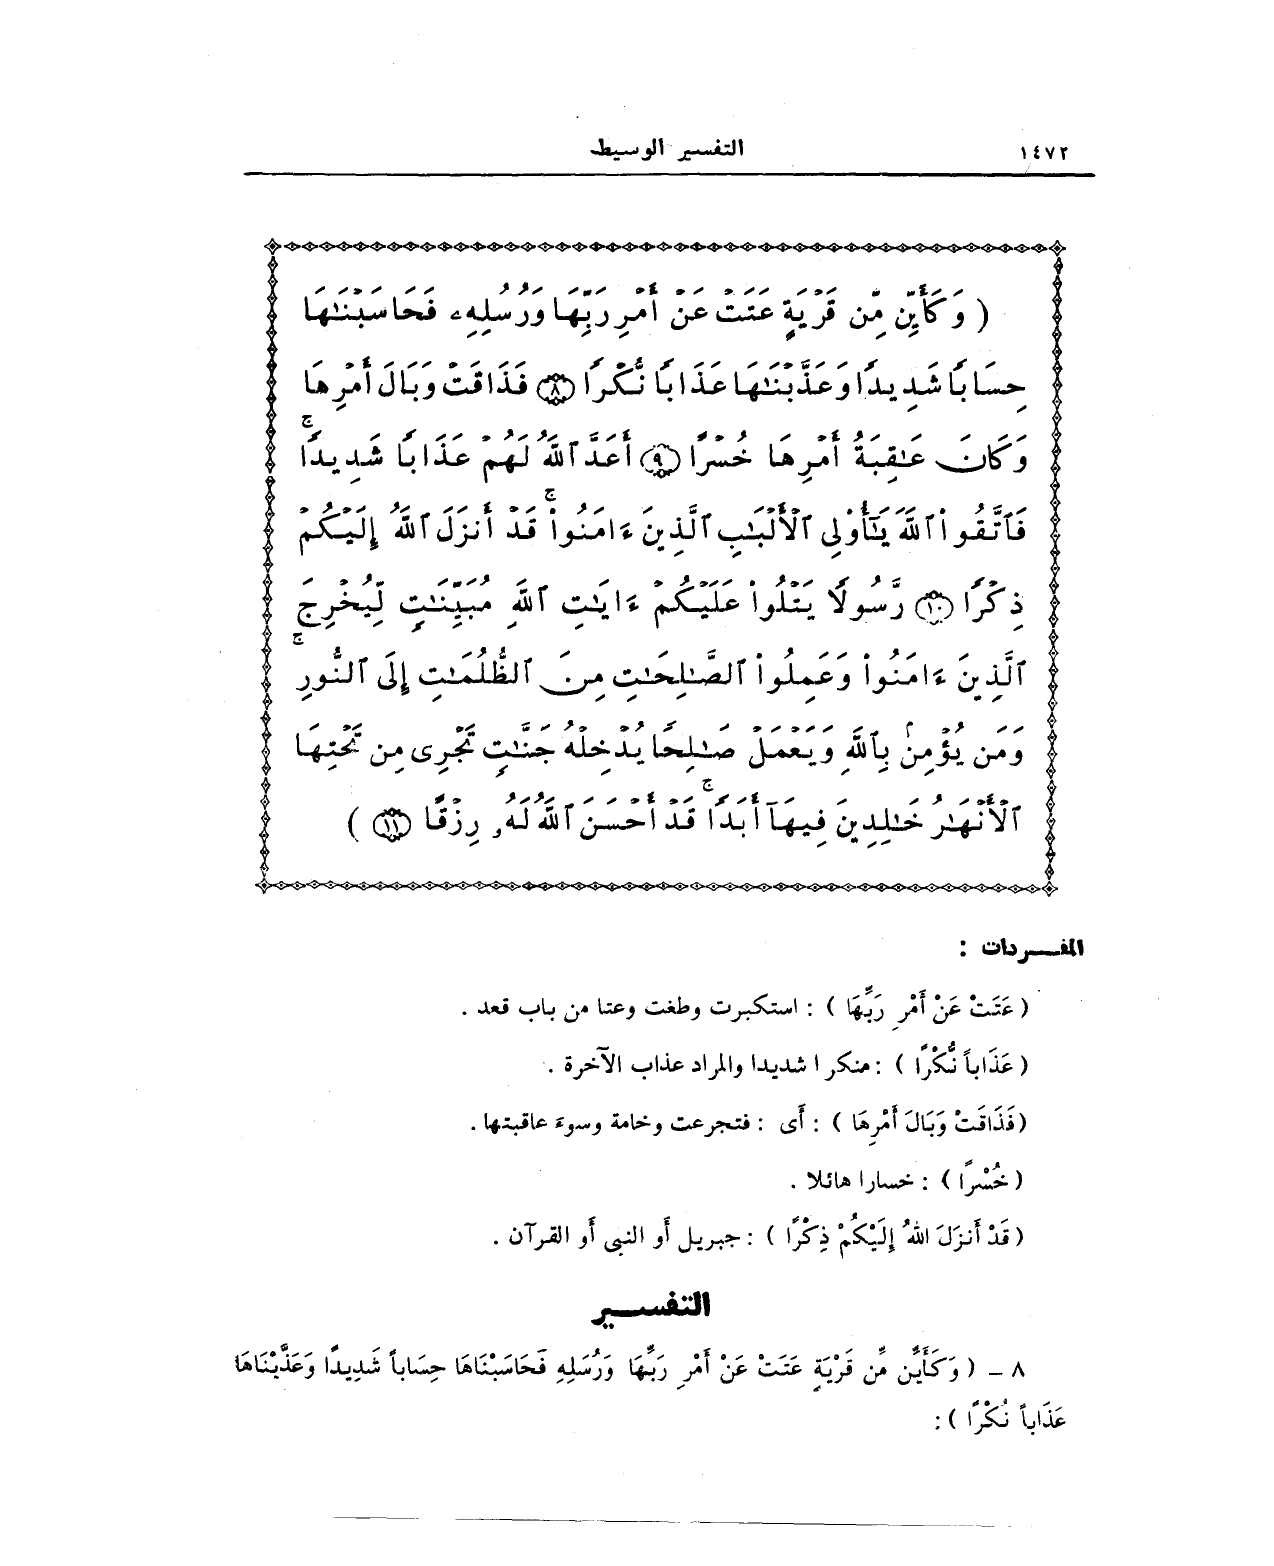 ١٤٧٢ التفسير الوسيط
( وَكَأَيِّن مِّن قَرْيَةٍ عَتَتْ عَنْ أَمْرِ رَبِّهَا وَرُسُلِهِۦ فَحَاسَبْنَـٰهَا
حِسَابًا شَدِيدًا وَعَذَّبْنَـٰهَا عَذَابًا نُّكْرًا ﴿٨﴾ فَذَاقَتْ وَبَالَ أَمْرِهَا
وَكَانَ عَـٰقِبَةُ أَمْرِهَا خُسْرًا ﴿٩﴾ أَعَدَّ ٱللَّهُ لَهُمْ عَذَابًا شَدِيدًا ۖ
فَٱتَّقُوا۟ ٱللَّهَ يَـٰٓأُو۟لِى ٱلْأَلْبَـٰبِ ٱلَّذِينَ ءَامَنُوا۟ ۚ قَدْ أَنزَلَ ٱللَّهُ إِلَيْكُمْ
ذِكْرًا ﴿١٠﴾ رَّسُولًا يَتْلُوا۟ عَلَيْكُمْ ءَايَـٰتِ ٱللَّهِ مُبَيِّنَـٰتٍ لِّيُخْرِجَ
ٱلَّذِينَ ءَامَنُوا۟ وَعَمِلُوا۟ ٱلصَّـٰلِحَـٰتِ مِنَ ٱلظُّلُمَـٰتِ إِلَى ٱلنُّورِ ۚ
وَمَن يُؤْمِنۢ بِٱللَّهِ وَيَعْمَلْ صَـٰلِحًا يُدْخِلْهُ جَنَّـٰتٍ تَجْرِى مِن تَحْتِهَا
ٱلْأَنْهَـٰرُ خَـٰلِدِينَ فِيهَآ أَبَدًا ۖ قَدْ أَحْسَنَ ٱللَّهُ لَهُۥ رِزْقًا ﴿١١﴾ )
المفـــردات :
( عَتَتْ عَنْ أَمْرِ رَبِّهَا ) : استكبرت وطغت وعتا من باب قعد .
( عَذَاباً نُّكْرًا ) : منكرا شديدا والمراد عذاب الآخرة .
( فَذَاقَتْ وَبَالَ أَمْرِهَا ) : أَى : فتجرعت وخامة وسوءَ عاقبتها .
( خُسْرًا ) : خسارا هائلا .
( قَدْ أَنزَلَ اللهُ إِلَيْكُمْ ذِكْرًا ) : جبريل أَو النبى أَو القرآن .
التفســـير
٨ – ( وَكَأَيِّن مِّن قَرْيَةٍ عَتَتْ عَنْ أَمْرِ رَبِّهَا وَرُسُلِهِ فَحَاسَبْنَاهَا حِسَاباً شَدِيدًا وَعَذَّبْنَاهَا
عَذَاباً نُكْرًا ) :